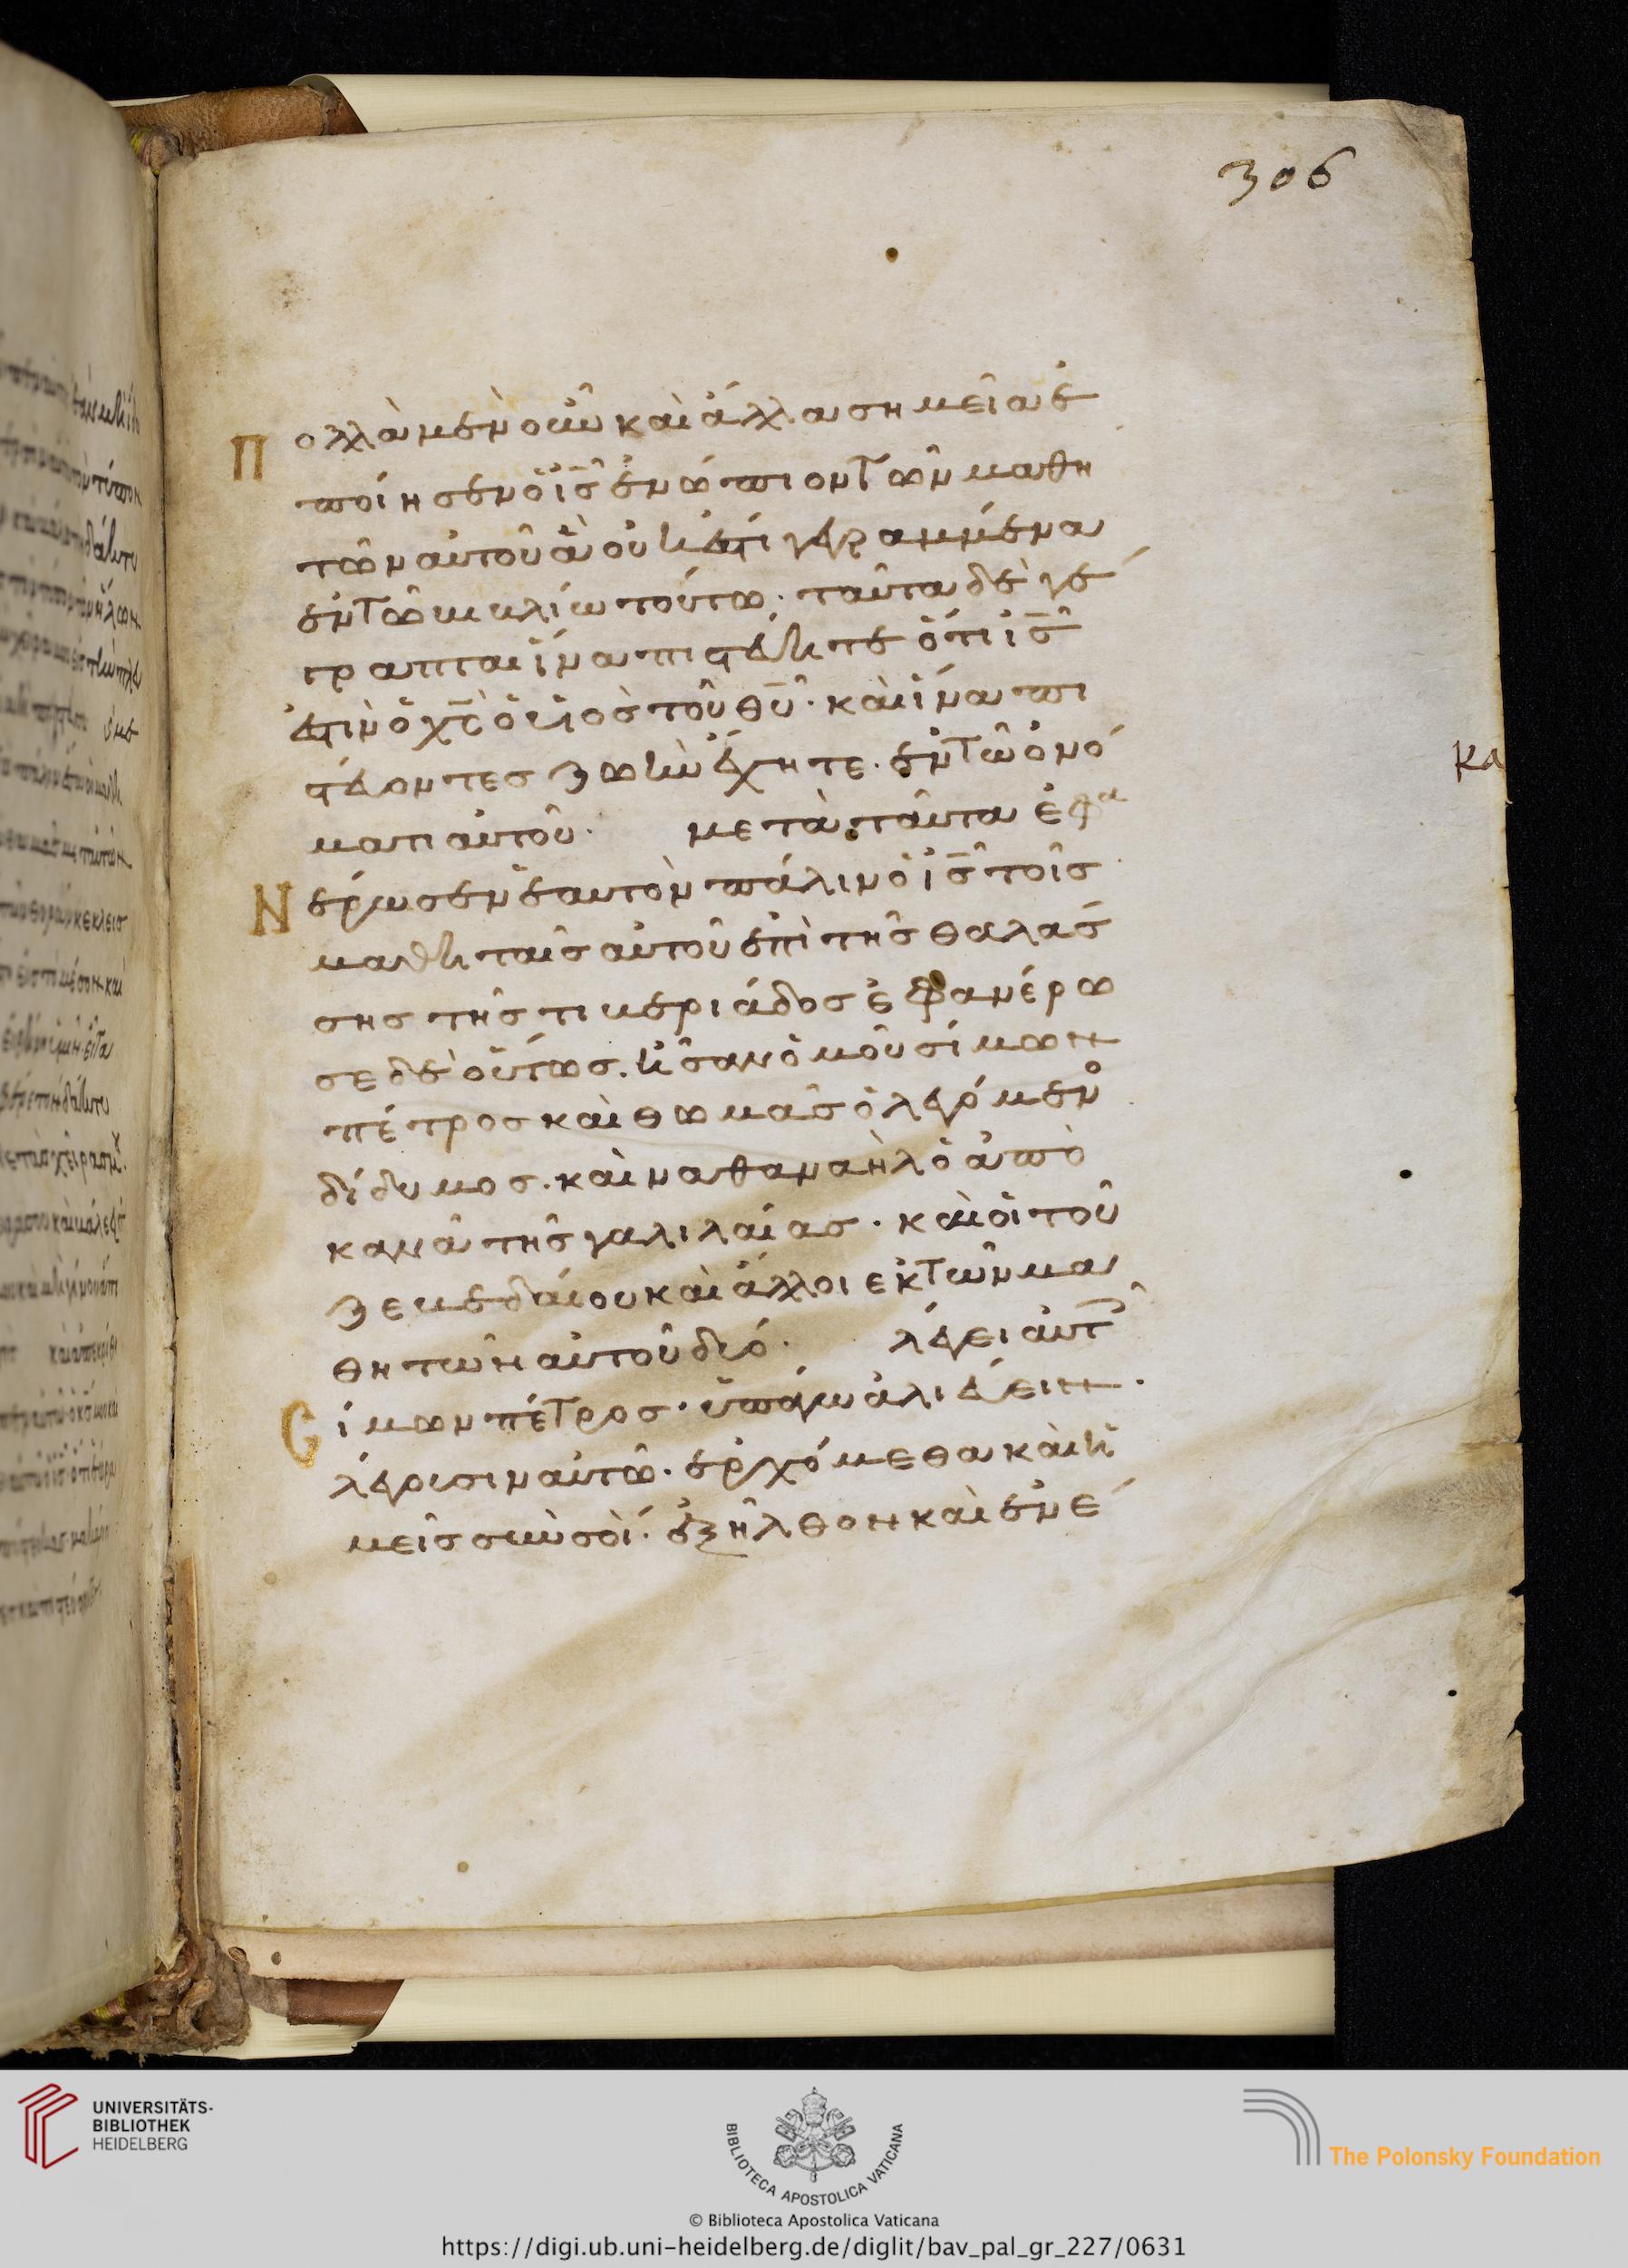 306
Πολλὰ μὲν οὖν καὶ ἄλλα σημεῖα ἐ
ποίησεν ὁ ις ἐνώπιον τῶν μαθη
τῶν αὐτοῦ ἃ οὐκ ἔστι γεγραμμένα
ἐν τῶ βιβλίω τούτω· ταῦτα δὲ γέ
γραπται ἵνα πιστεύητε ὅτι ις
ἐστιν ὁ χς ὁ υἱος τοῦ θυ· καὶ ἵνα πι
στεύοντες ζωὴν ἔχητε· ἐν τῶ ὀνό
ματι αὐτοῦ· μετὰ ταῦτα ἐφα
Νέρωσεν ἑαυτὸν πάλιν ὁ ις τοῖς
μαθηταῖς αὐτοῦ ἐπὶ τῆς θαλάσ
σης τῆς τιβεριάδος ἐφανέρω
σε δὲ οὕτως· ἦσαν ὁμοῦ σίμων
πέτρος καὶ θωμᾶς ὁ λεγόμενο
δίδυμος· καὶ ναθαναὴλ ὁ ἀπὸ
κανᾶ τῆς γαλιλαίας· καὶ οἱ τοῦ
ζεβεδαίου καὶ ἄλλοι εκ τῶν μα
θητῶν αὐτοῦ δύο· λέγει αὐτ
Cίμων πέτρος· ὑπάγω ἁλιεύειν·
λέγουσιν αὐτῶ· ἐρχόμεθα καὶ ἡ
μεῖς σὺν σοί· ἐξῆλθον καὶ ἐνέ
κα
UNIVERSITÄTS-
BIBLIOTHEK
HEIDELBERG
BIBLIOTECA APOSTOLICA VATICANA
The Polonsky Foundation
© Biblioteca Apostolica Vaticana
https://digi.ub.uni-heidelberg.de/diglit/bav_pal_gr_227/0631